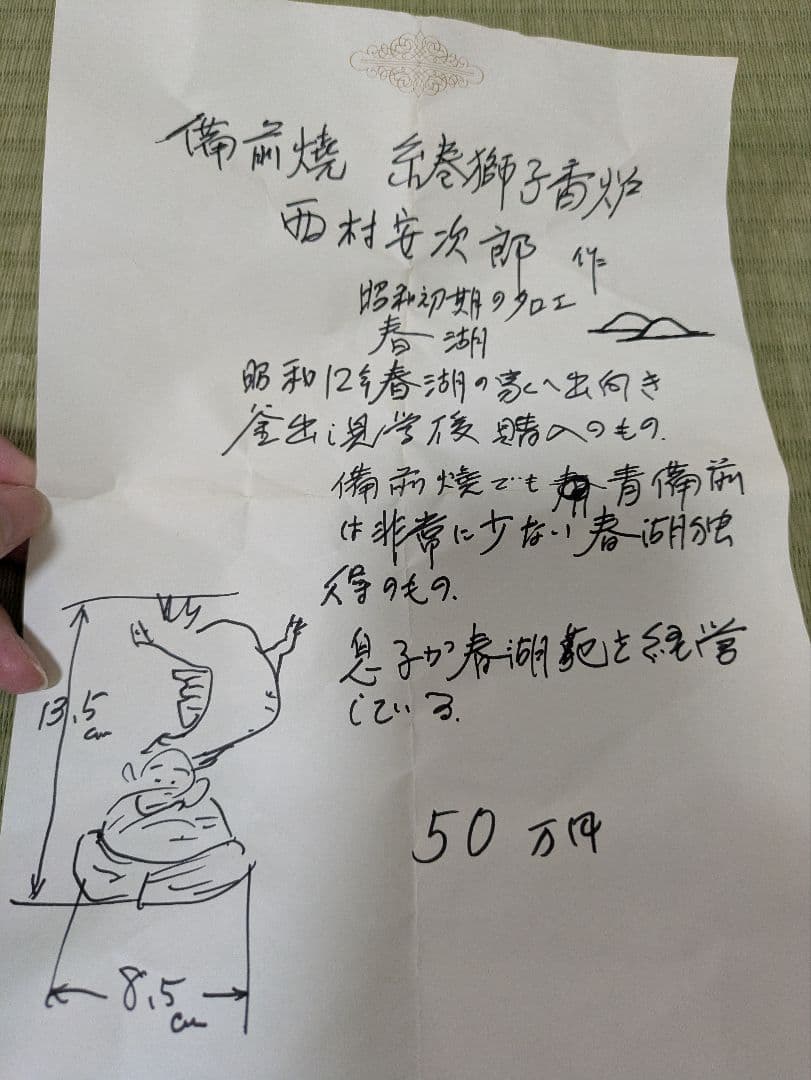 備前燒 糸巻獅子香炉
西村安次郎 作
昭和初期のタロエ
春湖
昭和12年春湖の家へ出向き
釜出し見学後購入のもの.
備前燒でも 青備前
は非常に少ない春湖独
得のもの.
息子が春湖苑を経営
している.
13.5
cm
50万円
8.5
cm